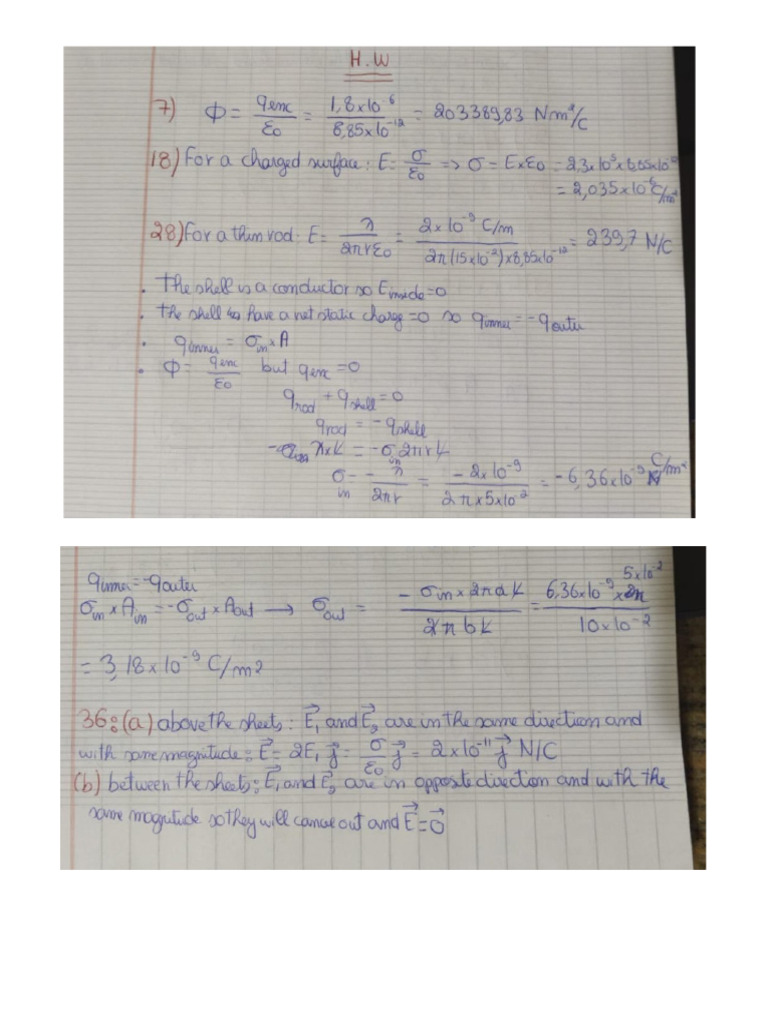 H.W
7) Φ = qenc/ε0 = 1,8x10^-6/8,85x10^-12 = 203389,83 Nm²/C
18) For a charged surface: E = σ/ε0 => σ = E×ε0 = 2,3x10^5 x 8,85x10^-12
= 2,035x10^-6 C/m²
28) For a thin rod: E = λ/2πrε0 = 2x10^-9 C/m / 2π(15x10^-2)x8,85x10^-12 = 239,7 N/C
. The shell is a conductor so E inside = 0
. The shell have a net static charge = 0 so q inner = -q outer
. q inner = σin x A
. Φ = qenc/ε0 but qenc = 0
q rod + q shell = 0
q rod = -q shell
λxk = -σin 2πrk
σin = -λ/2πr = -2x10^-9/2πx5x10^-2 = -6,36x10^-9 C/m²
q inner = -q outer
σin x Ain = -σout x Aout → σout = -σin x 2πak/2πbk = 6,36x10^-9 x 5x10^-2/10x10^-2
= 3,18x10^-9 C/m2
36: (a) above the sheets: E⃗1 and E⃗2 are in the same direction and
with same magnitude: E⃗ = 2E1 j⃗ = σ/ε0 j⃗ = 2x10^-11 j⃗ N/C
(b) between the sheets: E⃗1 and E⃗2 are in opposte direction and with the
same magnitude so they will cancue out and E⃗ = 0⃗